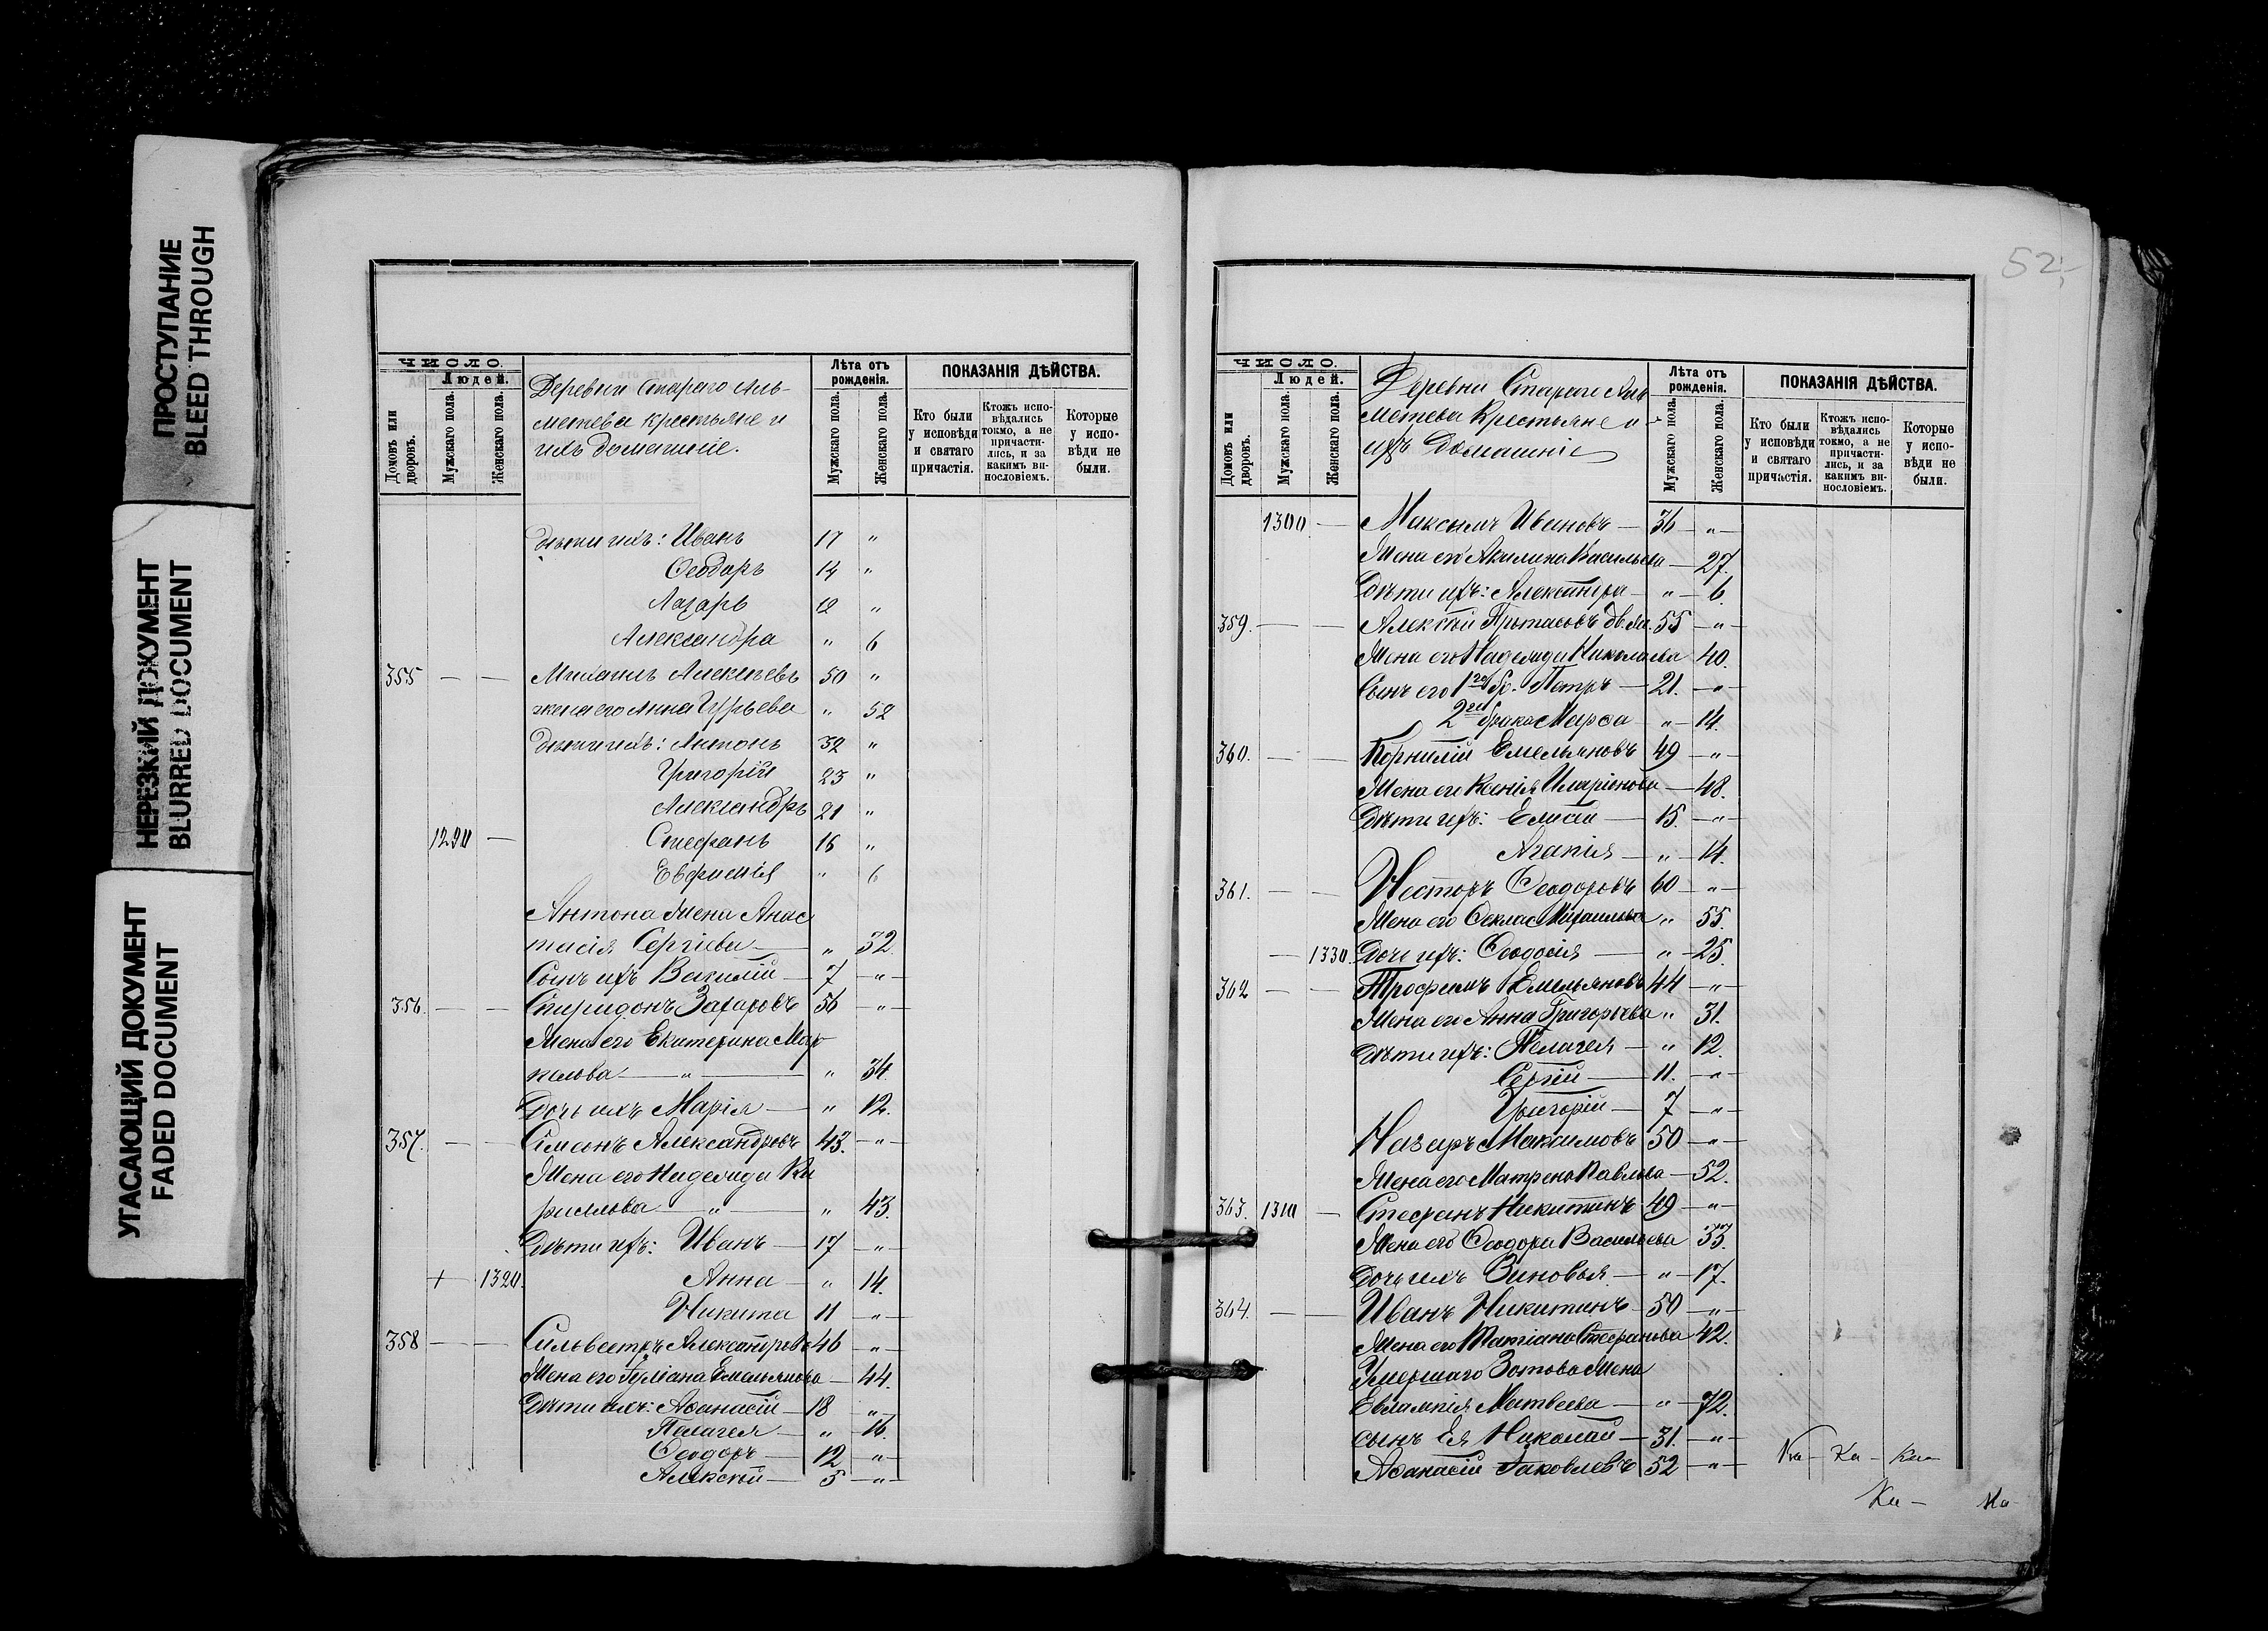 ПРОСТУПАНИЕ
BLEED THROUGH
НЕРЕЗКИЙ ДОКУМЕНТ
BLURRED DOCUMENT
УГАСАЮЩИЙ ДОКУМЕНТ
FADED DOCUMENT
ЧИСЛО.
Людей.
Домовъ или дворовъ.
Мужскаго пола.
Женскаго пола.
Деревни Стараго Аль-
метева крестьяне и
ихъ домашніе.
Лѣта отъ рожденія.
Мужскаго пола.
Женскаго пола.
ПОКАЗАНІЯ ДѢЙСТВА.
Кто были у исповѣди и святаго причастія.
Ктожъ испо-вѣдались токмо, а не причасти-лись, и за какимъ ви-нословіемъ.
Которые у испо-вѣди не были.
дѣти ихъ: Иванъ 17 "
Ѳеодоръ 14 "
Лазарь 12 "
Александра " 6
355 — — Михаилъ Алексѣевъ 50 "
жена его Анна Гурьева " 52
дѣти ихъ: Антонъ 32 "
Григорій 23 "
Александръ 21 "
1290 — Стефанъ 16 "
Евфимія " 6
Антона жена Анас
тасія Сергіева — " 32
Сынъ ихъ Василій — 7 — " —
356. — — Спиридонъ Захаровъ 56 — " —
Жена его Екатерина Мар
келова — " — " 34.
Дочь ихъ Марія — " 12.
357. — — Симонъ Александровъ 43. — " —
Жена его Надежда Ки
риллова — " — " 43.
Дѣти ихъ: Иванъ — 17 — " —
+ 1320. Анна — " 14.
Никита 11 — " —
358 — — Сильвестръ Александровъ 46 — " —
Жена его Іуліана Емельянова — 44.
Дѣти ихъ: Аѳанасій — 18 — " —
Пелагея — " 16.
Ѳеодоръ — 12 — " —
Алексѣй — 5 — " —
52
ЧИСЛО.
Людей.
Домовъ или дворовъ.
Мужскаго пола.
Женскаго пола.
Деревни Стараго Аль
метева Крестьяне и
ихъ Домашніе
Лѣта отъ рожденія.
Мужскаго пола.
Женскаго пола.
ПОКАЗАНІЯ ДѢЙСТВА.
Кто были у исповѣди и святаго причастія.
Ктожъ испо-вѣдались токмо, а не причасти-лись, и за какимъ ви-нословіемъ.
Которые у испо-вѣди не были.
1300 — Максимъ Ивановъ — 36 — " —
Жена его Акилина Васильева — 27.
Дѣти ихъ: Александра — " — 6.
359. — — Алексѣй Протасовъ 55 — " —
Жена его Надежда Николаева 40.
Сынъ его 1го бр. Петръ — 21. — " —
2го брака Марѳа " — 14.
360. — — Корнилій Емельяновъ 49 — " —
Жена его Ксенія Иларіонова — 48.
Дѣти ихъ: Елисей — 15. — " —
Агапія — " — 14.
361. — — Несторъ Ѳеодоровъ 60 — " —
Жена его Ѳекла Михаилова " 55.
— 1330. Дочь ихъ: Ѳеодосія — " — 25.
362 — — Трофимъ Емельяновъ 44 — " —
Жена его Анна Григорьева " 31.
Дѣти ихъ: Пелагея — " 12.
Сергій — 11. — " —
Григорій — 7 — " —
Назаръ Максимовъ 50 — " —
Жена его Матрена Павлова — 52.
363. 1310 — Стефанъ Никитинъ 49 — " —
Жена его Ѳеодора Васильева 33.
Дочь ихъ Зиновья — " — 17.
364. — — Иванъ Никитинъ 50 — " —
Жена его Татіана Стефанова 42.
Умершаго Зотова Жена
Евлампія Матвеева — " — 72.
сынъ Ея Николай — 31. — " —
Аѳанасій Іаковлевъ 52 — " —
Ка — Ка —
Ка — Ка